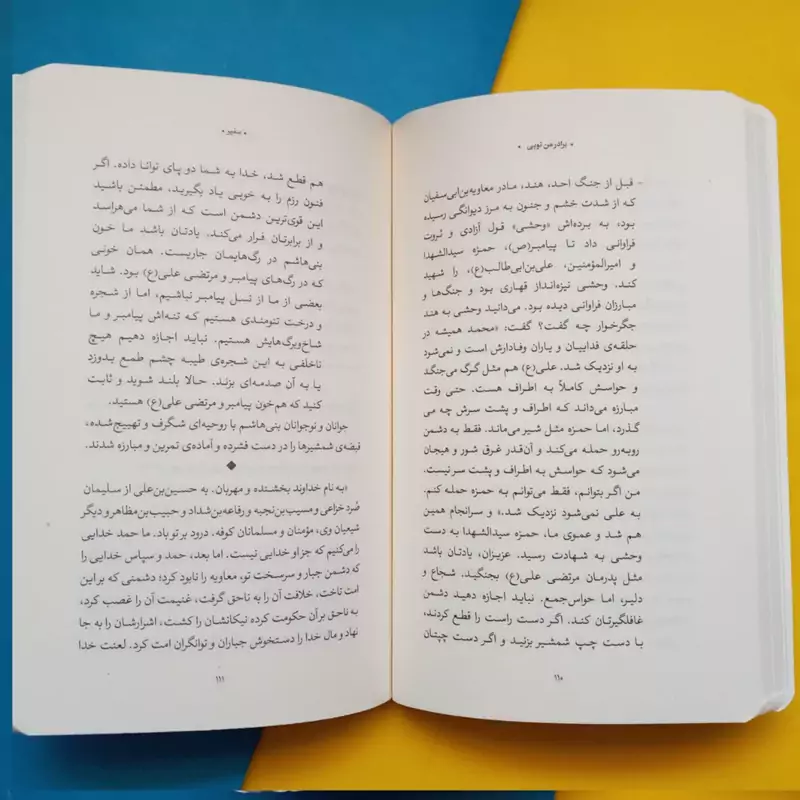 • برادر من تویی •
- قبل از جنگ احد، هند، مادر معاویه‌بن‌ابی‌سفیان
که از شدت خشم و جنون به مرز دیوانگی رسیده
بود، به برده‌اش «وحشی» قول آزادی و ثروت
فراوانی داد تا پیامبر(ص)، حمزه سیدالشهدا
و امیرالمؤمنین، علی‌بن‌ابی‌طالب(ع)، را شهید
کند. وحشی نیزه‌انداز قهاری بود و جنگ‌ها و
مبارزان فراوانی دیده بود. می‌دانید وحشی به هند
جگرخوار چه گفت؟ گفت: «محمد همیشه در
حلقه‌ی فداییان و یاران وفادارش است و نمی‌شود
به او نزدیک شد. علی(ع) هم مثل گرگ می‌جنگد
و حواسش کاملاً به اطراف هست. حتی وقت
مبارزه می‌داند که اطراف و پشت سرش چه می
گذرد، اما حمزه مثل شیر می‌ماند. فقط به دشمن
روبه‌رو حمله می‌کند و آن‌قدر غرق شور و هیجان
می‌شود که حواسش به اطراف و پشت سر نیست.
من اگر بتوانم، فقط می‌توانم به حمزه حمله کنم.
به علی نمی‌شود نزدیک شد.» و سرانجام همین
هم شد و عموی ما، حمزه سیدالشهدا به دست
وحشی به شهادت رسید. عزیزان، یادتان باشد
مثل پدرمان مرتضی علی(ع) بجنگید. شجاع و
دلیر، اما حواس‌جمع. نباید اجازه دهید دشمن
غافلگیرتان کند. اگر دست راست را قطع کردند،
با دست چپ شمشیر بزنید و اگر دست چپتان
۱۱۰
• سفیر •
هم قطع شد، خدا به شما دو پای توانا داده. اگر
فنون رزم را به خوبی یاد بگیرید، مطمئن باشید
این قوی‌ترین دشمن است که از شما می‌هراسد
و از برابرتان فرار می‌کند. یادتان باشد ما خون
بنی‌هاشم در رگ‌هایمان جاریست. همان خونی
که در رگ‌های پیامبر و مرتضی علی(ع) بود. شاید
بعضی از ما از نسل پیامبر نباشیم، اما از شجره
و درخت تنومندی هستیم که تنه‌اش پیامبر و ما
شاخ‌وبرگ‌هایش هستیم. نباید اجازه دهیم هیچ
ناخلفی به این شجره‌ی طیبه چشم طمع بدوزد
یا به آن صدمه‌ای بزند. حالا بلند شوید و ثابت
کنید که هم‌خون پیامبر و مرتضی علی(ع) هستید.
جوانان و نوجوانان بنی‌هاشم با روحیه‌ای شگرف و تهییج‌شده،
قبضه‌ی شمشیرها را در دست فشرده و آماده‌ی تمرین و مبارزه شدند.
◆
«به نام خداوند بخشنده و مهربان. به حسین‌بن‌علی از سلیمان
صُرد خزاعی و مسیب‌بن‌نجبه و رفاعه‌بن‌شداد و حبیب‌بن‌مظاهر و دیگر
شیعیان وی، مؤمنان و مسلمانان کوفه. درود بر تو باد. ما حمد خدایی
را می‌کنیم که جز او خدایی نیست. اما بعد، حمد و سپاس خدایی را
که دشمن جبار و سرسخت تو، معاویه را نابود کرد؛ دشمنی که بر این
امت تاخت، خلافت آن را به ناحق گرفت، غنیمت آن را غصب کرد،
به ناحق بر آن حکومت کرده نیکانشان را کشت، اشرارشان را به جا
نهاد و مال خدا را دستخوش جباران و توانگران امت کرد. لعنت خدا
۱۱۱